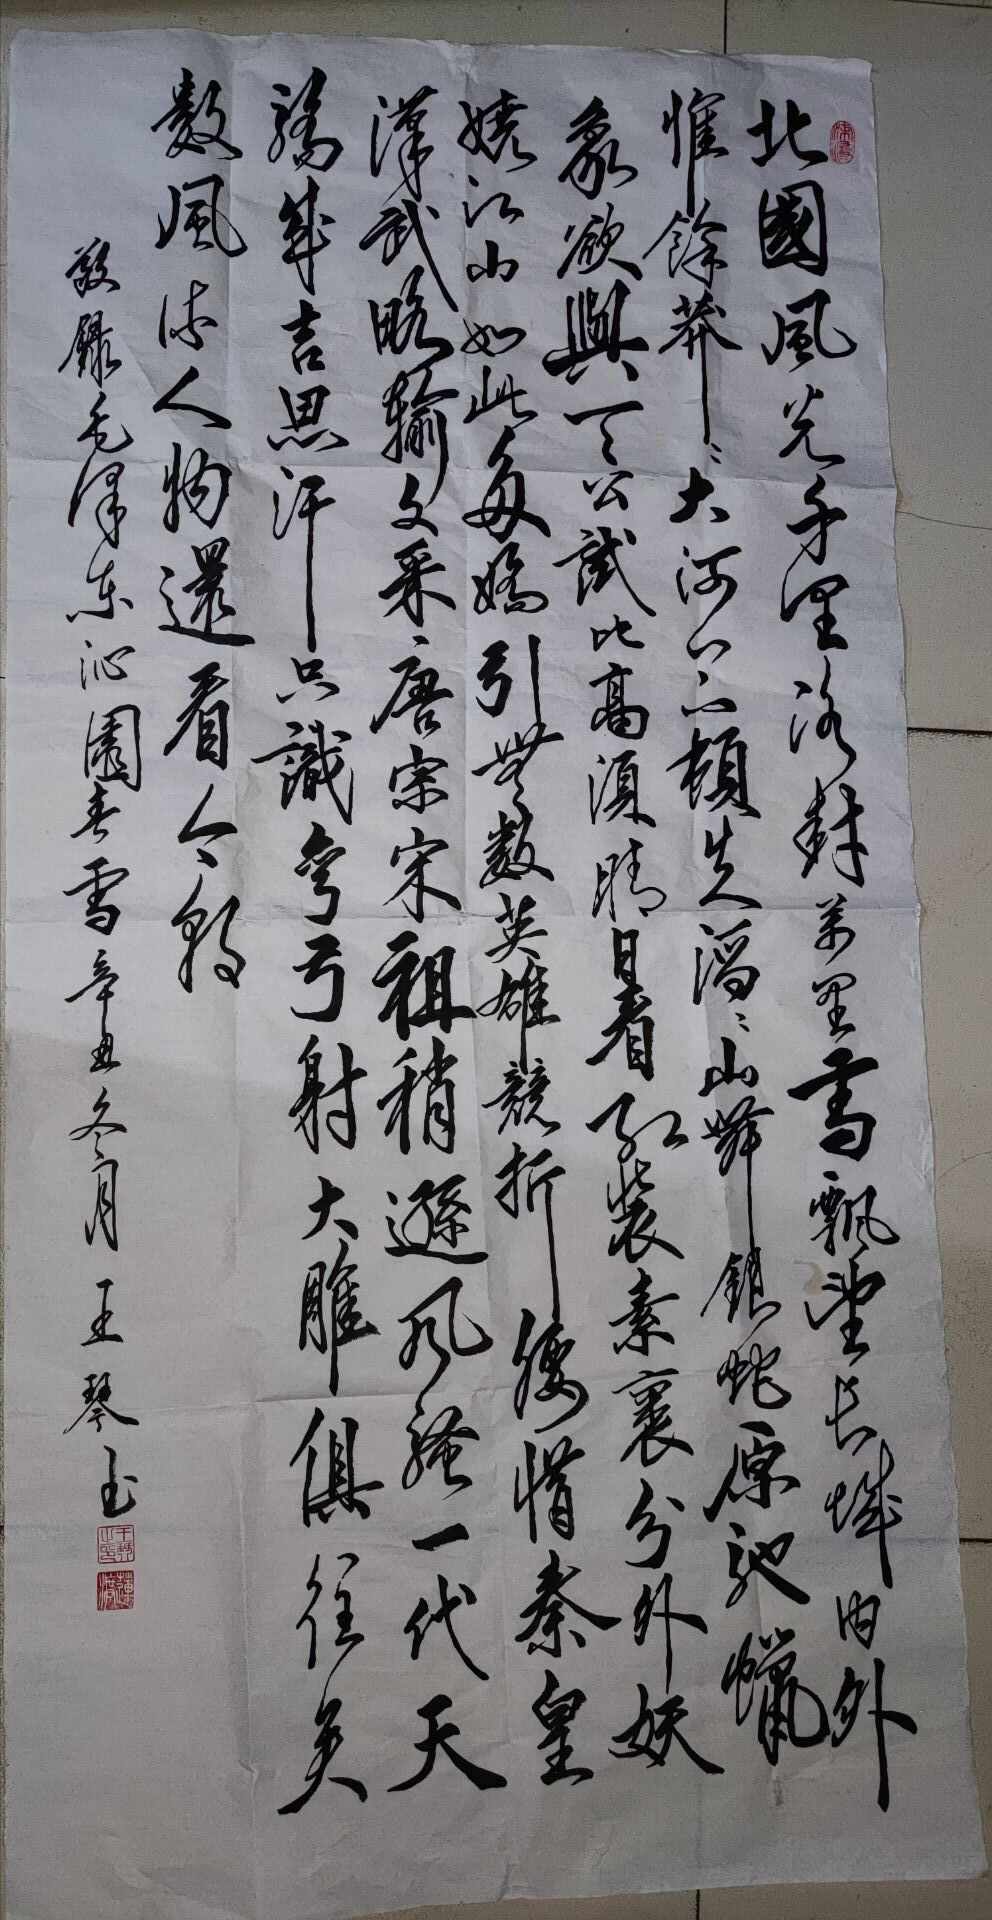 北國風光千里冰封萬里雪飄望長城内外
惟餘莽〻大河上下頓失滔〻山舞銀蛇原馳蠟
象欲與天公試比高須晴日看红裝素裹分外妖
嬈江山如此多嬌引無數英雄競折腰惜秦皇
漢武略輸文采唐宗宋祖稍遜风騷一代天
驕成吉思汗只識彎弓射大雕俱往矣
數風流人物還看今朝
敬録毛澤东沁園春雪辛丑冬月王琴玉